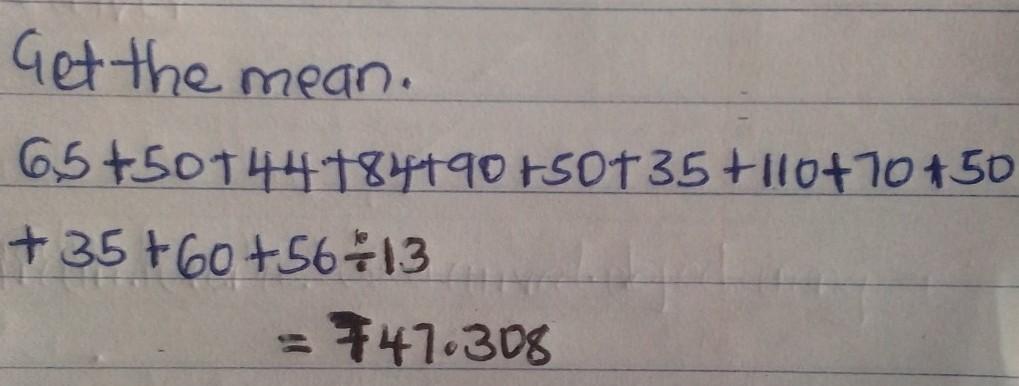 Get the mean.
65+50+44+84+90+50+35+110+70+50
+35+60+56÷13
= 747.308